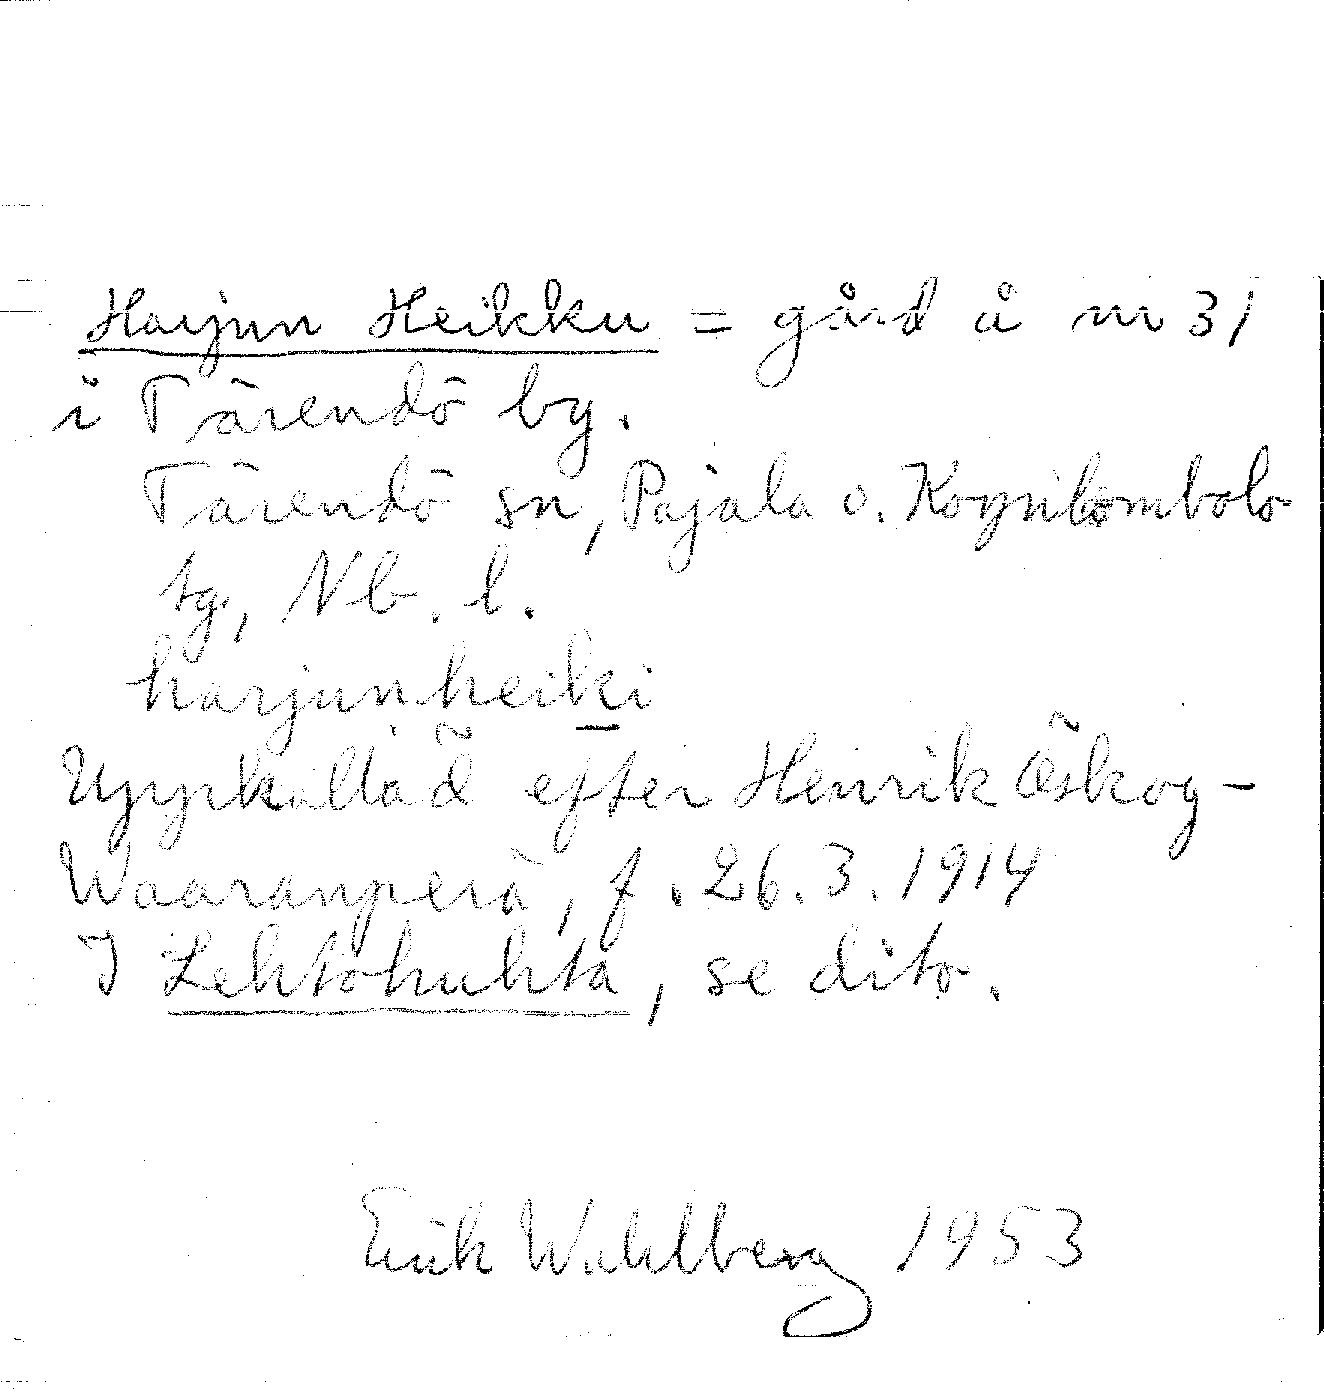 Harjun Heikku = gård å nr 31
i Tärendö by.
Tärendö sn, Pajala o. Korpilombolo
tg, Nb. l.
harjunheiki
Uppkallad efter Henrik Äskog-
Waaranperä, f. 26.3.1914
I Lehtohuhta, se dito.
Erik Wahlberg 1953